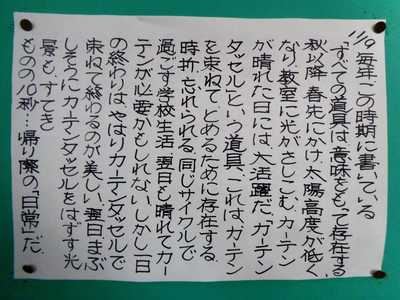 11/9 毎年、この時期に書いている
「すべての道具は、意味をもって存在する」
秋以降、春先にかけ、太陽高度が低く
なり、教室に光がさしこむ。カーテン
が晴れた日には、大活躍だ。「カーテン
タッセル」という道具、これは、カーテン
を束ねて、とめるために存在する。
時折、忘れられる。同じサイクルで
過ごす学校生活、翌日も晴れてカー
テンが必要かもしれない。しかし、一日
の終わりは、やはりカーテンタッセルで
束ねて終わるのが美しい。翌日、まぶ
しそうにカーテンタッセルをはずす光
景も、すてき
ものの10秒…帰り際の「日常」だ。